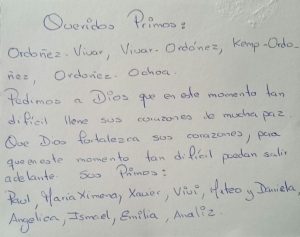 Queridos Primos:
Ordoñez-Vivar, Vivar-Ordónez, Kemp-Ordo-
ñez, Ordoñez-Ochoa.
Pedimos a Dios que en este momento tan
difícil llene sus corazones de mucha paz.
Que Dios fortalezca sus corazones, para
que en este momento tan difícil puedan salir
adelante. Sus Primos:
Paul, Maria Ximena, Xavier, Vivi, Mateo y Daniela,
Angelica, Ismael, Emilia, Analiz.